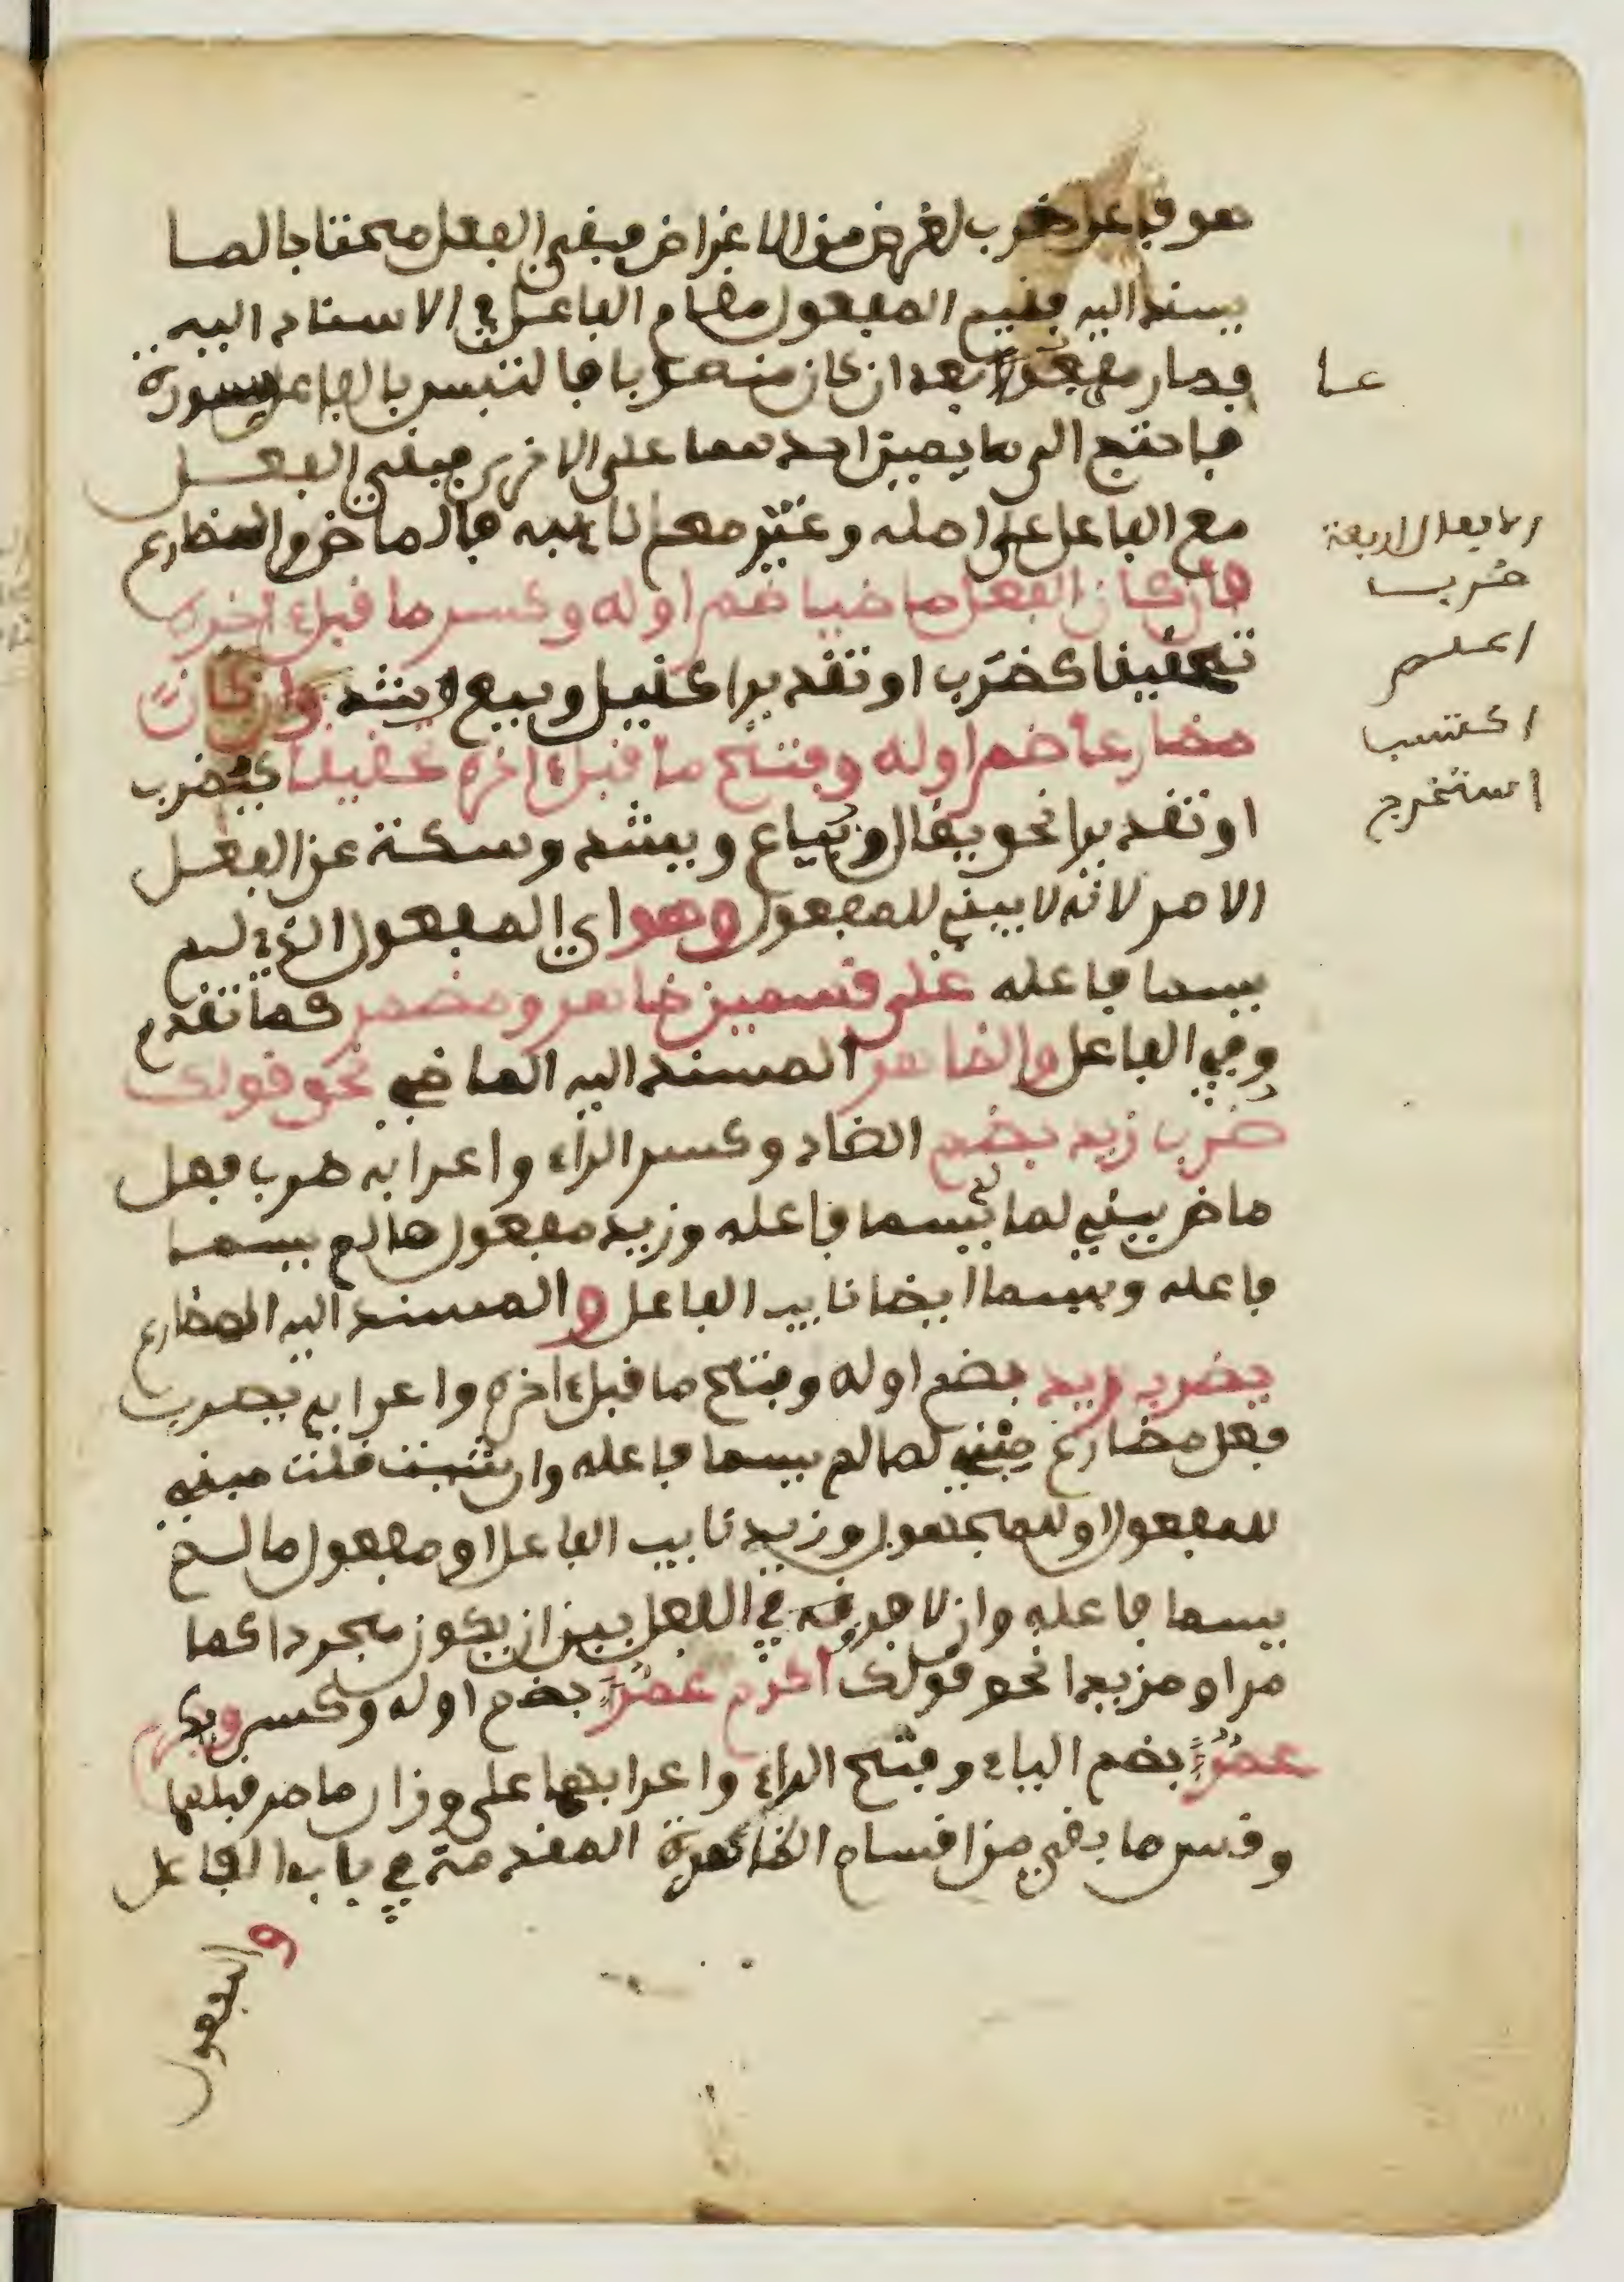 هو فاعل ضرب لغرض من الاغراض فبقى الفعل محتاجا لما
يسند اليه فقيم المفعول مقام الفاعل في الاسناد اليه
فصار مرفوعا بعد ان كان منصوبا فالتبس بالفاعل صورة
عا
فاحتج الى ما يميز احدهما على الاخر فبقي الفعل
مع الفاعل على اصله وغير مع نائبه فالماض والمضارع
فان كان الفعل ماضيا ضم اوله وكسر ما قبل ءاخره
تحقيقا كضرب او تقديرا كقيل وبيع وشد وان كان
مضارعا ضم اوله وفتح ما قبل ءاخره تحقيقا كيضرب
او تقديرا نحو يقال ويباع ويشد وسكت عن الفعل
الامر لانه لا يبنى للمفعول وهو اي المفعول الذي لم
يسما فاعله على قسمين ظاهر ومضمر كما تقدم
وفي الفاعل والظاهر المسند اليه الماضي نحو قولك
ضرب زيد بضم الضاد وكسر الراء واعرابه ضرب فعل
ماض بني لما لم يسما فاعله وزيد مفعول ما لم يسما
فاعله ويسما ايضا نايب الفاعل والمسند اليه المضارع
يضرب زيد بضم اوله وفتح ما قبل ءاخره واعرابه يضرب
فعل مضارع مبني لما لم يسما فاعله وان شيت قلت مبني
للمفعول او للمجهول وزيد نايب الفاعل او مفعول ما لم
يسما فاعله وان لا فرق في الفعل بين ان يكون مجردا كما
مر او مزيدا نحو قولك اكرم عمرو بضم اوله وكسر ويكرم
عمرو بضم الياء وفتح الراء واعرابهما على وزان ما مر قبلهما
وقس ما بقي من اقسام الظاهرة المقدمة في باب الفاعل
والمفعول
الافعال الاربعة
ضرب
اعلم
اكتسب
استخرج